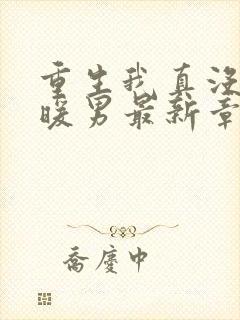 重生我真没
暖男最新章
乔庆中